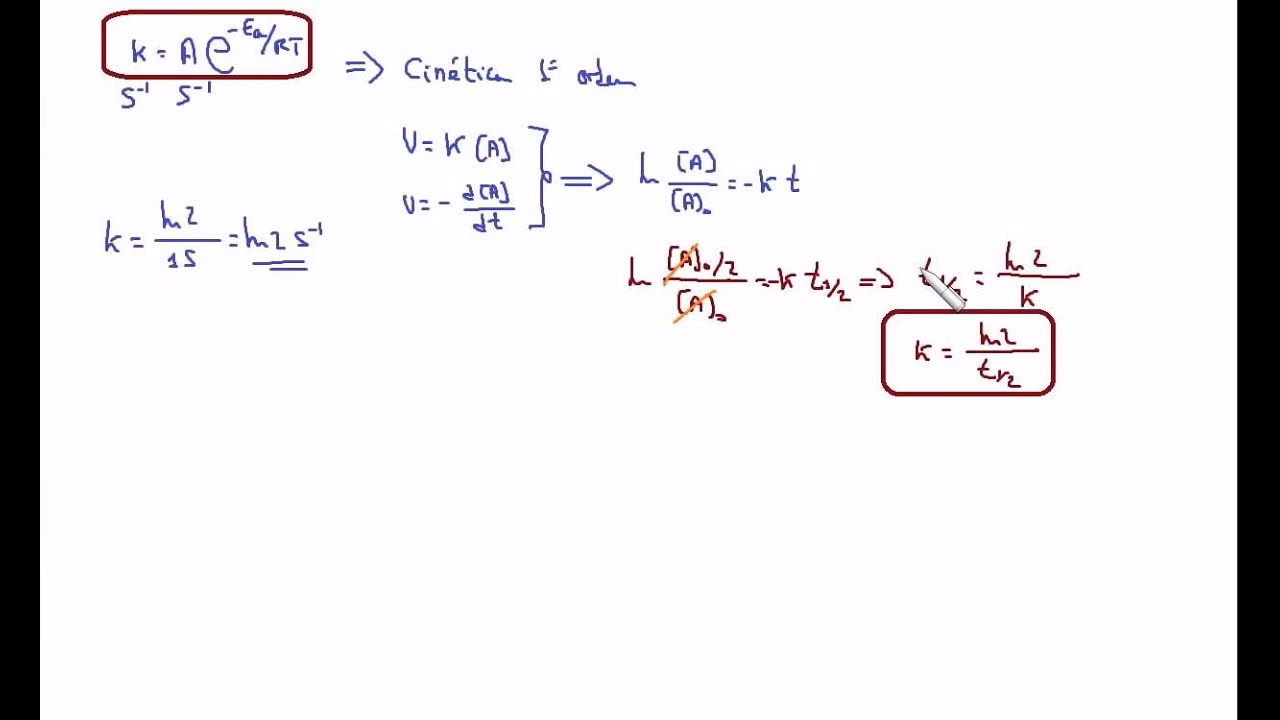 k = A e^{-Ea/RT}
s⁻¹ s⁻¹
=> Cinética 1ª ordem
v = k [A]
v = - d[A]/dt
=> ln [A]/[A]₀ = -k t
k = ln2/1s = ln2 s⁻¹
ln ([A]₀/2)/[A]₀ = -k t₁/₂ => t₁/₂ = ln2/k
k = ln2/t₁/₂